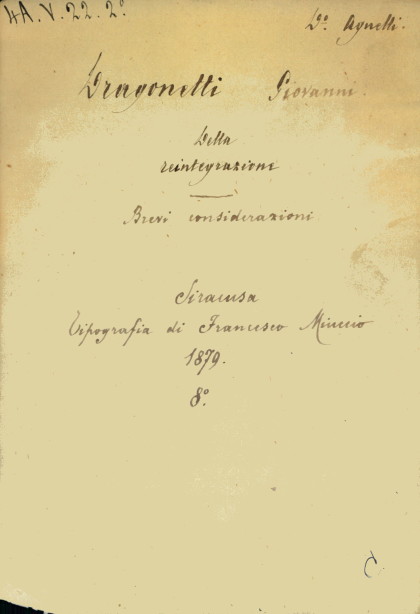 4A.V.22.2º
Dº. Agnelli.
Dragonetti Giovanni.
Della
reintegrazione
Brevi considerazioni
Siracusa
Tipografia di Francesco Miuccio
1879.
8º.
C